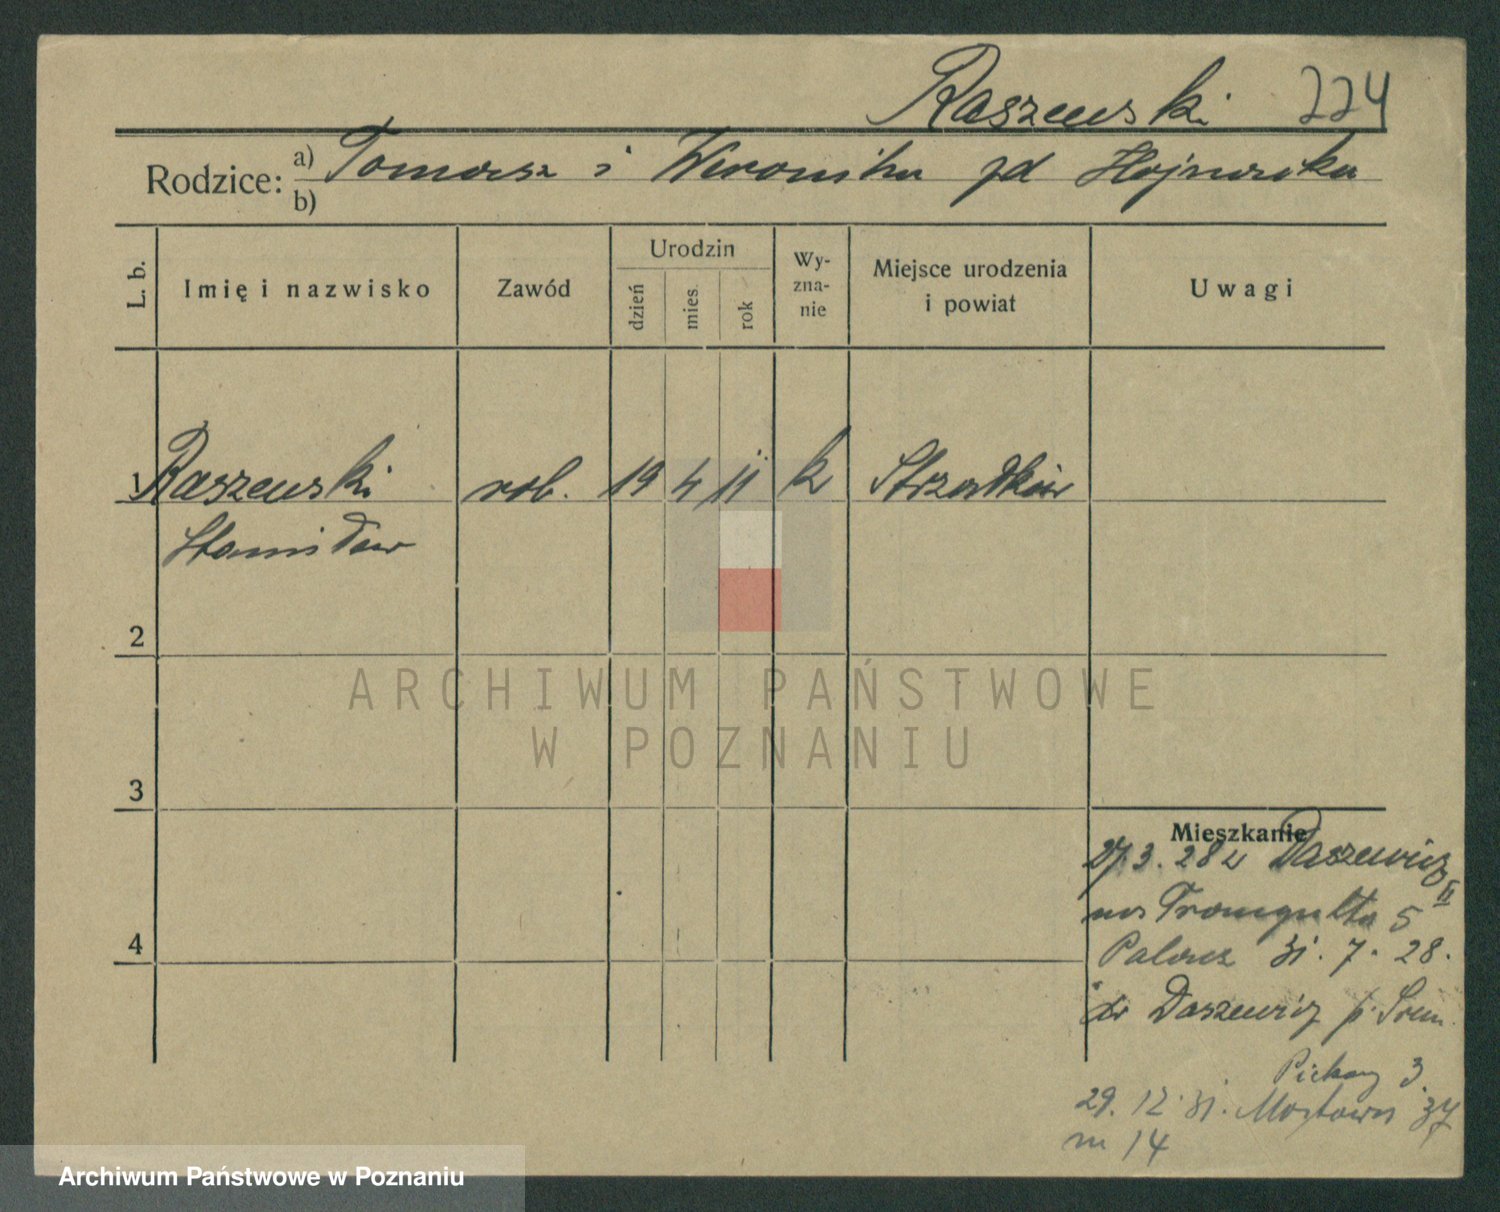 Raszewski 224
Rodzice: a) Tomasz i Weronika zd Hojnacka
b)
L. b. Imię i nazwisko Zawód Urodzin dzień mies. rok Wy-zna-nie Miejsce urodzenia i powiat Uwagi
1 Raszewski rob. 19 4 11 k Strzałków
Stanisław
2
3
4
Mieszkanie
27.3.28 z Daszewic
5 II
31.7.28.
do Daszewic p. Śrem
Piekary 3
29.12.31. Mostowa 37
m 14
ARCHIWUM PAŃSTWOWE
W POZNANIU
Archiwum Państwowe w Poznaniu